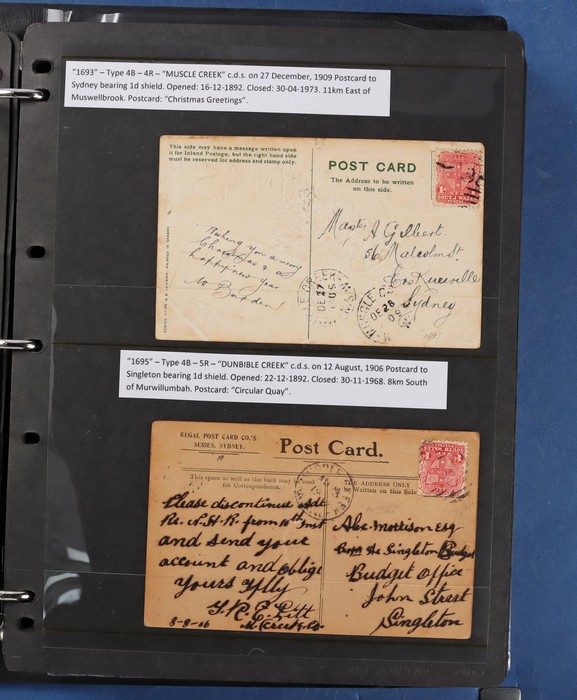 "1693" – Type 4B – 4R – "MUSCLE CREEK" c.d.s. on 27 December, 1909 Postcard to
Sydney bearing 1d shield. Opened: 16-12-1892. Closed: 30-04-1973. 11km East of
Muswellbrook. Postcard: "Christmas Greetings".
This side may have a message written upon
it for Inland Postage, but the right hand side
must be reserved for address and stamp only.
POST CARD
The Address to be written
on this side.
Wishing you a merry
Christmas & a
happy new year
Master A Gilbert
56 Malcolm St
Sydney
DE 27
09
MUSCLE C
DE 28
09
"1695" – Type 4B – 5R – "DUNBIBLE CREEK" c.d.s. on 12 August, 1906 Postcard to
Singleton bearing 1d shield. Opened: 22-12-1892. Closed: 30-11-1968. 8km South
of Murwillumbah. Postcard: "Circular Quay".
REGAL POST CARD CO.'S
SERIES, SYDNEY.
Post Card.
This space as well as the back may be used
for Correspondence.
THE ADDRESS ONLY
Written on this Side
Please discontinue advt
Re. N.H.R. from 10th inst
and send your
account and oblige
Yours ffly
8-8-06
Alex Morrison Esq
Singleton Budget
Budget Office
John Street
Singleton